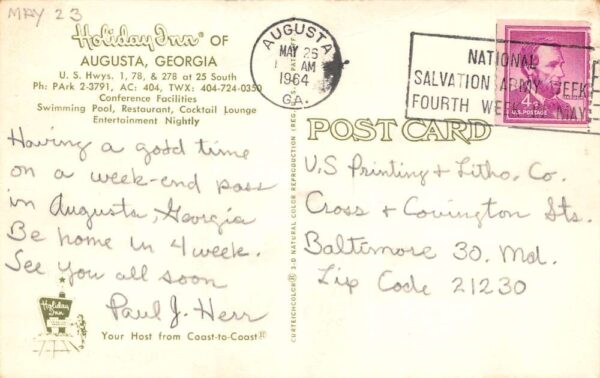 MAY 23
Holiday Inn® OF
AUGUSTA, GEORGIA
U. S. Hwys. 1, 78, & 278 at 25 South
Ph: PArk 2-3791, AC: 404, TWX: 404-724-0350
Conference Facilities
Swimming Pool, Restaurant, Cocktail Lounge
Entertainment Nightly
AUGUSTA
MAY 26
AM
1964
GA.
NATIONAL
SALVATION ARMY WEEK
FOURTH WEEK MAY
4¢
U.S. POSTAGE
POST CARD
Having a good time
on a week-end pass
in Augusta, Georgia
Be home in 4 week.
See you all soon
Paul J. Herr
U.S Printing & Litho. Co.
Cross & Covington Sts.
Baltimore 30. Md.
Zip Code 21230
CURTEICHCOLOR® 3-D NATURAL COLOR REPRODUCTION (REG. U.S. PAT. OFF.)
Holiday
Inn
Your Host from Coast-to-Coast®